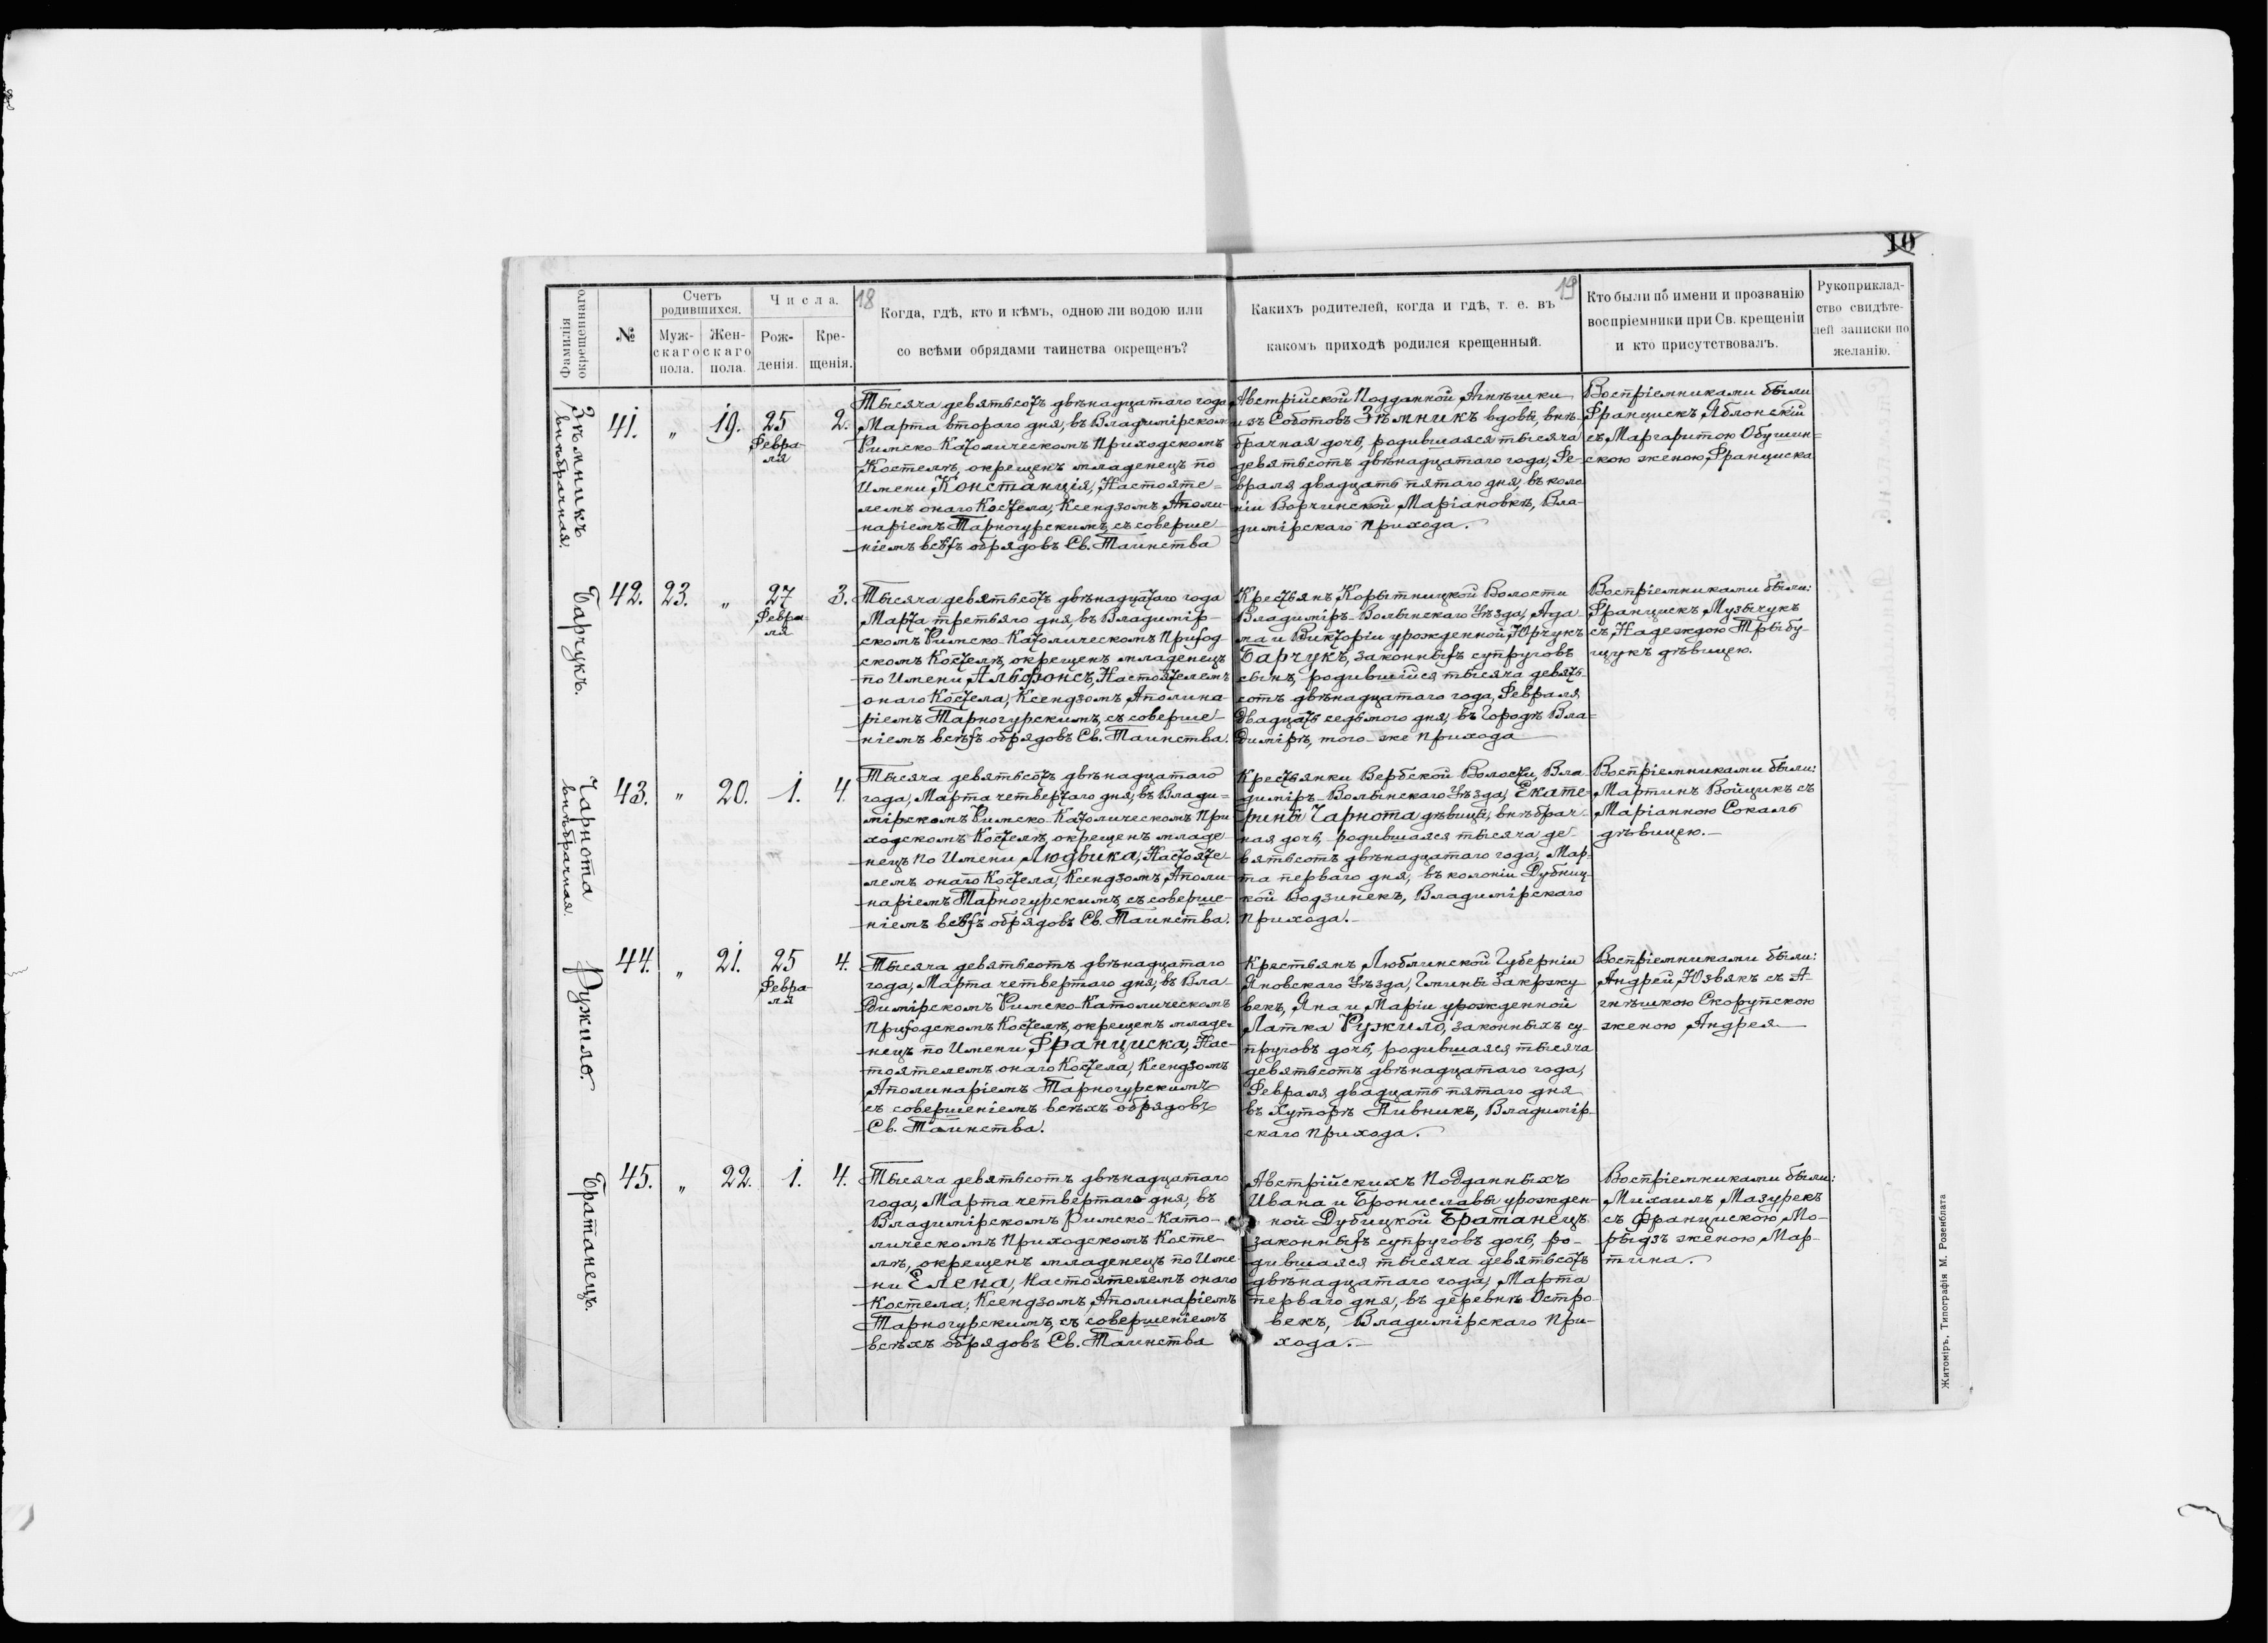 10
18
19
Фамилія окрещеннаго
№
Счетъ родившихся.
Муж-
скаго
пола.
Жен-
скаго
пола.
Числа.
Рож-
денія.
Кре-
щенія.
Когда, гдѣ, кто и кѣмъ, одною ли водою или
со всѣми обрядами таинства окрещенъ?
Какихъ родителей, когда и гдѣ, т. е. въ
какомъ приходѣ родился крещенный.
Кто были по имени и прозванію
воспріемники при Св. крещеніи
и кто присутствовалъ.
Рукоприклад-
ство свидѣте-
лей записки по
желанію.
Зѣмникъ
внѣбрачная.
41. „ 19. 25 Февра-
ля
2.
Тысяча девятьсотъ двѣнадцатаго года
Марта второго дня, въ Владимірском
Римско-Католическомъ Приходскомъ
Костелѣ, окрещенъ младенецъ по
Имени Констанція, Настояте=
лемъ онаго Костела, Ксендзомъ Аполи-
наріемъ Тарногурскимъ, съ соверше-
ніемъ всѣхъ обрядовъ Св. Таинства
Австрійской Подданной Агнѣшки
изъ Соботовъ Зѣмникъ вдовы, внѣ-
брачная дочь, родившаяся тысяча
девятьсотъ двѣнадцатаго года, Фе-
враля двадцать пятаго дня, въ коло
ніи Ворчинской Маріановкѣ, Вла-
димірскаго прихода.
Воспріемниками были
Францискъ Яблонскій
съ Маргаритою Обушин=
скою женою Франциска
Барчукъ.
42. 23. „ 27 Февра-
ля
3.
Тысяча девятьсотъ двѣнадцатаго года
Марта третьяго дня, въ Владимір-
скомъ Римско-Католическомъ Приход
скомъ Костелѣ, окрещенъ младенецъ
по Имени Альфонсъ, Настоятелемъ
онаго Костела, Ксендзомъ Аполина-
ріемъ Тарногурскимъ, съ соверше-
ніемъ всѣхъ обрядовъ Св. Таинства.
Крестьянъ Корытницкой Волости
Владиміръ-Волынскаго Уѣзда, Ада
ма и Викторіи урожденной Юрчукъ
Барчукъ, законныхъ супруговъ
сынъ, родившійся тысяча девять-
сотъ двѣнадцатаго года, Февраля
двадцать седьмого дня, въ Городѣ Вла=
димірѣ, того-же прихода
Воспріемниками были:
Францискъ Музычукъ
съ Надеждою Трыбу-
щукъ дѣвицею.
Чарнота
внѣбрачная.
43. „ 20. 1. 4.
Тысяча девятьсотъ двѣнадцатаго
года, Марта четвертаго дня, въ Влади=
мірскомъ Римско-Католическомъ При
ходскомъ Костелѣ, окрещенъ младе
нецъ по Имени Людвика, Настояте-
лемъ онаго Костела, Ксендзомъ Аполи-
наріемъ Тарногурскимъ, съ соверше-
ніемъ всѣхъ обрядовъ Св. Таинства.
Крестьянки Вербской Волости, Вла
диміръ-Волынскаго Уѣзда, Екате-
рины Чарнота дѣвицы, внѣбрач-
ная дочь, родившаяся тысяча де
вятьсотъ двѣнадцатаго года, Мар-
та перваго дня, въ колоніи Дубниц
кой Водзинекъ, Владимірскаго
прихода.
Воспріемниками были:
Мартинъ Войцикъ съ
Маріанною Сокаль
дѣвицею.
Ружило.
44. „ 21. 25 Февра-
ля
4.
Тысяча девятьсотъ двѣнадцатаго
года, Марта четвертаго дня, въ Вла-
димірскомъ Римско-Католическомъ
Приходскомъ Костелѣ, окрещенъ младе-
нецъ по Имени Франциска, Нас-
тоятелемъ онаго Костела, Ксендзомъ
Аполинаріемъ Тарногурскимъ
съ совершеніемъ всѣхъ обрядовъ
Св. Таинства.
Крестьянъ Люблинской Губерніи
Яновскаго Уѣзда, Гмины Закржу
векъ, Яна и Маріи урожденной
Латка Ружило, законныхъ су-
пруговъ дочь, родившаяся тысяча
девятьсотъ двѣнадцатаго года,
Февраля двадцать пятаго дня
въ хуторѣ Пивникъ, Владимір-
скаго прихода.
Воспріемниками были:
Андрей Юзвякъ съ А-
гнѣшкою Скорупскою
женою Андрея
Братанецъ.
45. „ 22. 1. 4.
Тысяча девятьсотъ двѣнадцатаго
года, Марта четвертаго дня, въ
Владимірскомъ Римско-Като-
лическомъ Приходскомъ Косте-
лѣ, окрещенъ младенецъ по Име
ни Елена, Настоятелемъ онаго
Костела, Ксендзомъ Аполинаріемъ
Тарногурскимъ, съ совершеніемъ
всѣхъ обрядовъ Св. Таинства
Австрійскихъ Подданныхъ
Ивана и Брониславы урожден-
ной Дубицкой Братанецъ
законныхъ супруговъ дочь, ро-
дившаяся тысяча девятьсотъ
двѣнадцатаго года, Марта
перваго дня, въ деревнѣ Остро-
векъ, Владимірскаго При-
хода.
Воспріемниками были:
Михаилъ Мазурекъ
съ Францискою Мо-
рыдзъ женою Мар-
тина.
Житоміръ, Типографія М. Розенблата